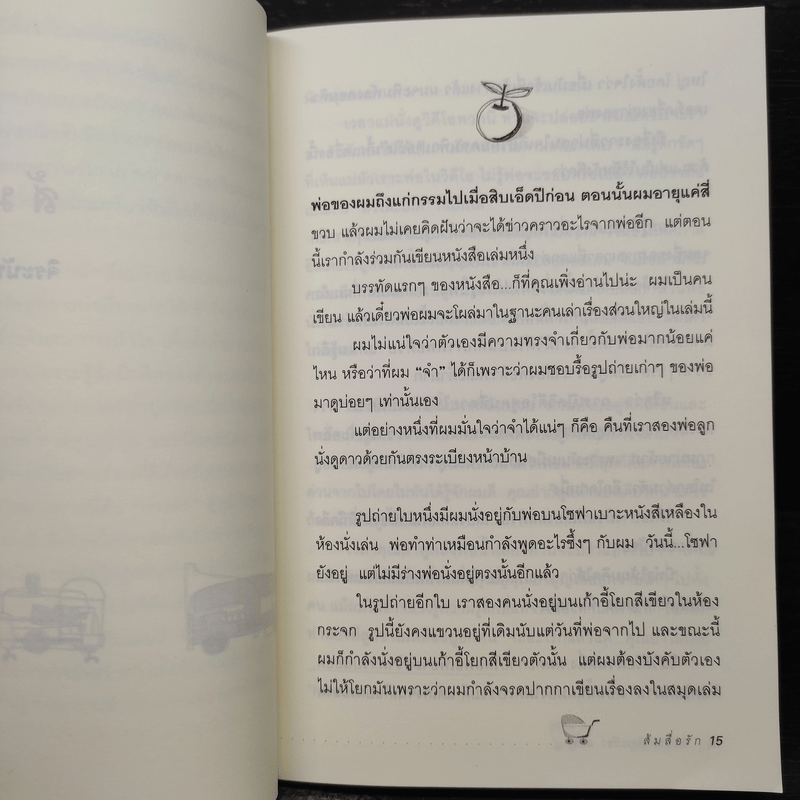 พ่อของผมถึงแก่กรรมไปเมื่อสิบเอ็ดปีก่อน ตอนนั้นผมอายุแค่สี่
ขวบ แล้วผมไม่เคยคิดฝันว่าจะได้ข่าวคราวอะไรจากพ่ออีก แต่ตอน
นี้เรากำลังร่วมกันเขียนหนังสือเล่มหนึ่ง
บรรทัดแรกๆ ของหนังสือ...ก็ที่คุณเพิ่งอ่านไปน่ะ ผมเป็นคน
เขียน แล้วเดี๋ยวพ่อผมจะโผล่มาในฐานะคนเล่าเรื่องส่วนใหญ่ในเล่มนี้
ผมไม่แน่ใจว่าตัวเองมีความทรงจำเกี่ยวกับพ่อมากน้อยแค่
ไหน หรือว่าที่ผม “จำ” ได้ก็เพราะว่าผมชอบรื้อรูปถ่ายเก่าๆ ของพ่อ
มาดูบ่อยๆ เท่านั้นเอง
แต่อย่างหนึ่งที่ผมมั่นใจว่าจำได้แน่ๆ ก็คือ คืนที่เราสองพ่อลูก
นั่งดูดาวด้วยกันตรงระเบียงหน้าบ้าน
รูปถ่ายใบหนึ่งมีผมนั่งอยู่กับพ่อบนโซฟาเบาะหนังสีเหลืองใน
ห้องนั่งเล่น พ่อทำท่าเหมือนกำลังพูดอะไรซึ้งๆ กับผม วันนี้...โซฟา
ยังอยู่ แต่ไม่มีร่างพ่อนั่งอยู่ตรงนั้นอีกแล้ว
ในรูปถ่ายอีกใบ เราสองคนนั่งอยู่บนเก้าอี้โยกสีเขียวในห้อง
กระจก รูปนี้ยังคงแขวนอยู่ที่เดิมนับแต่วันที่พ่อจากไป และขณะนี้
ผมก็กำลังนั่งอยู่บนเก้าอี้โยกสีเขียวตัวนั้น แต่ผมต้องบังคับตัวเอง
ไม่ให้โยกมันเพราะว่าผมกำลังจรดปากกาเขียนเรื่องลงในสมุดเล่ม
ส้มสื่อรัก 15